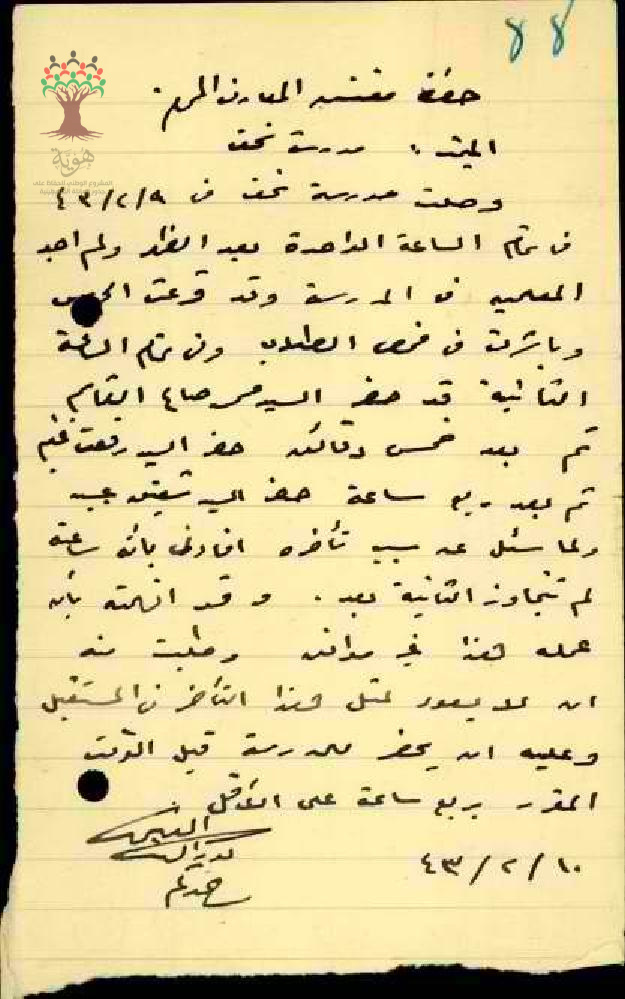 ٨٨
حضرة مفتش المعارف المحترم
الميت : مدرسة نحف
وصلت مدرسة نحف في ٤٣/٢/٩
في تمام الساعة الواحدة بعد الظهر ولم اجد
المعلمين في المدرسة وقد قرعت الجرس
وباشرت في فحص الطلاب وفي تمام الساعة
الثانية قد حضر السيد صالح القاسم
ثم بعد خمس دقائق حضر السيد رفعت
ثم بعد ربع ساعة حضر السيد شفيق
ولما سئل عن سبب تأخره افادني بأن ساعته
لم تتجاوز الثانية بعد . وقد افهمته بأن
عمله هذا غير موافق وطلبت منه
ان لا يعود لمثل هذا التأخر في المستقبل
وعليه ان يحضر للمدرسة قبل الوقت
المقرر بربع ساعة على الاقل
٤٣/٢/١٠
هوية